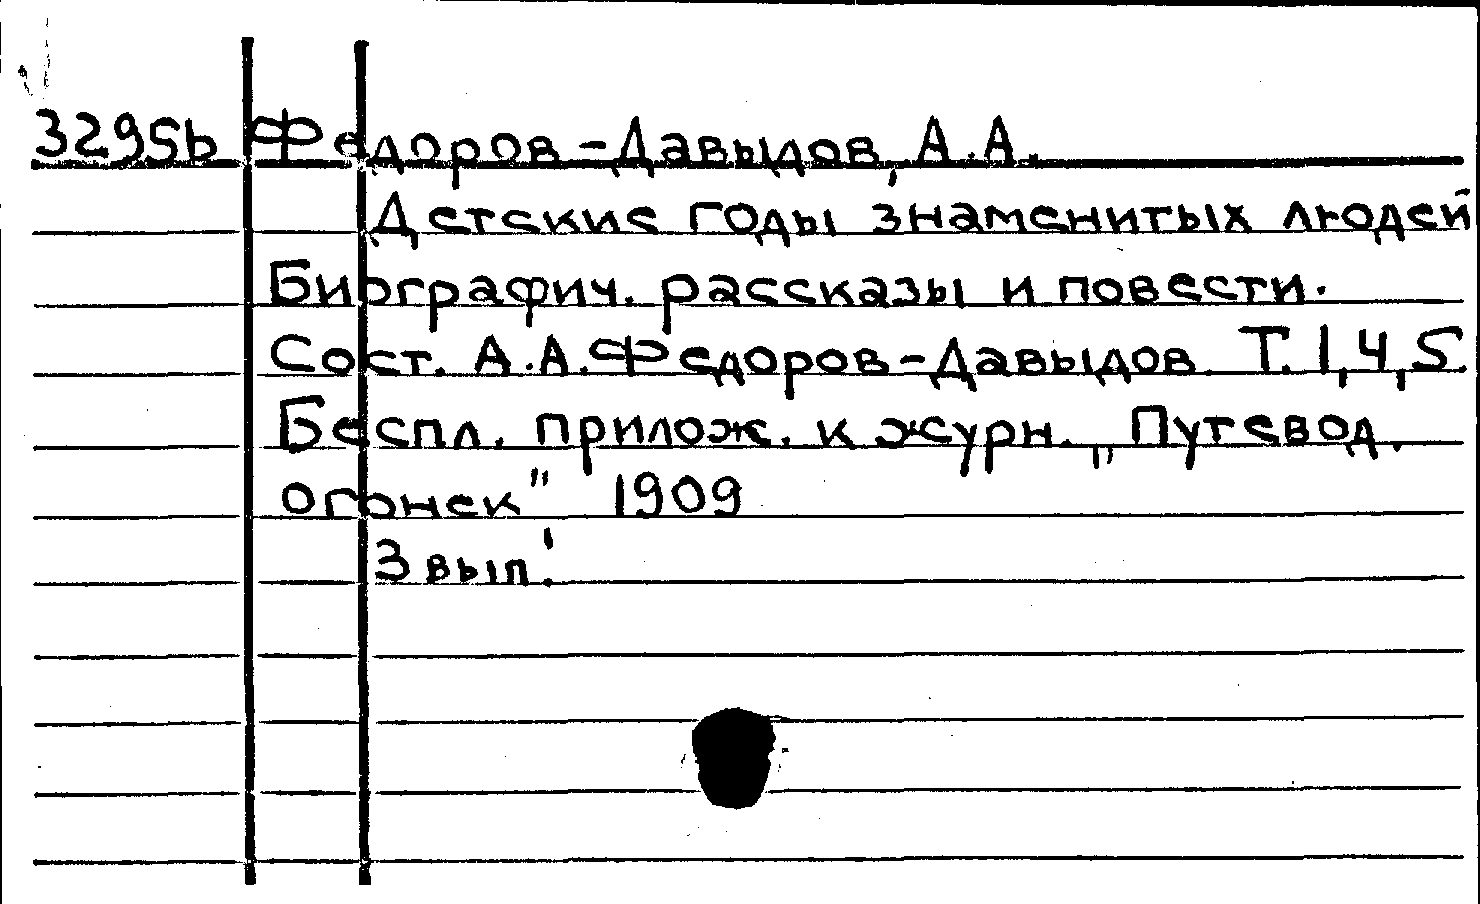 3295b Федоров-Давыдов, А.А.
Детские годы знаменитых людей
Биографич. рассказы и повести.
Сост. А.А.Федоров-Давыдов. Т.1,4,5.
Беспл. прилож. к журн. „Путевод.
огонек" 1909
3 вып.'